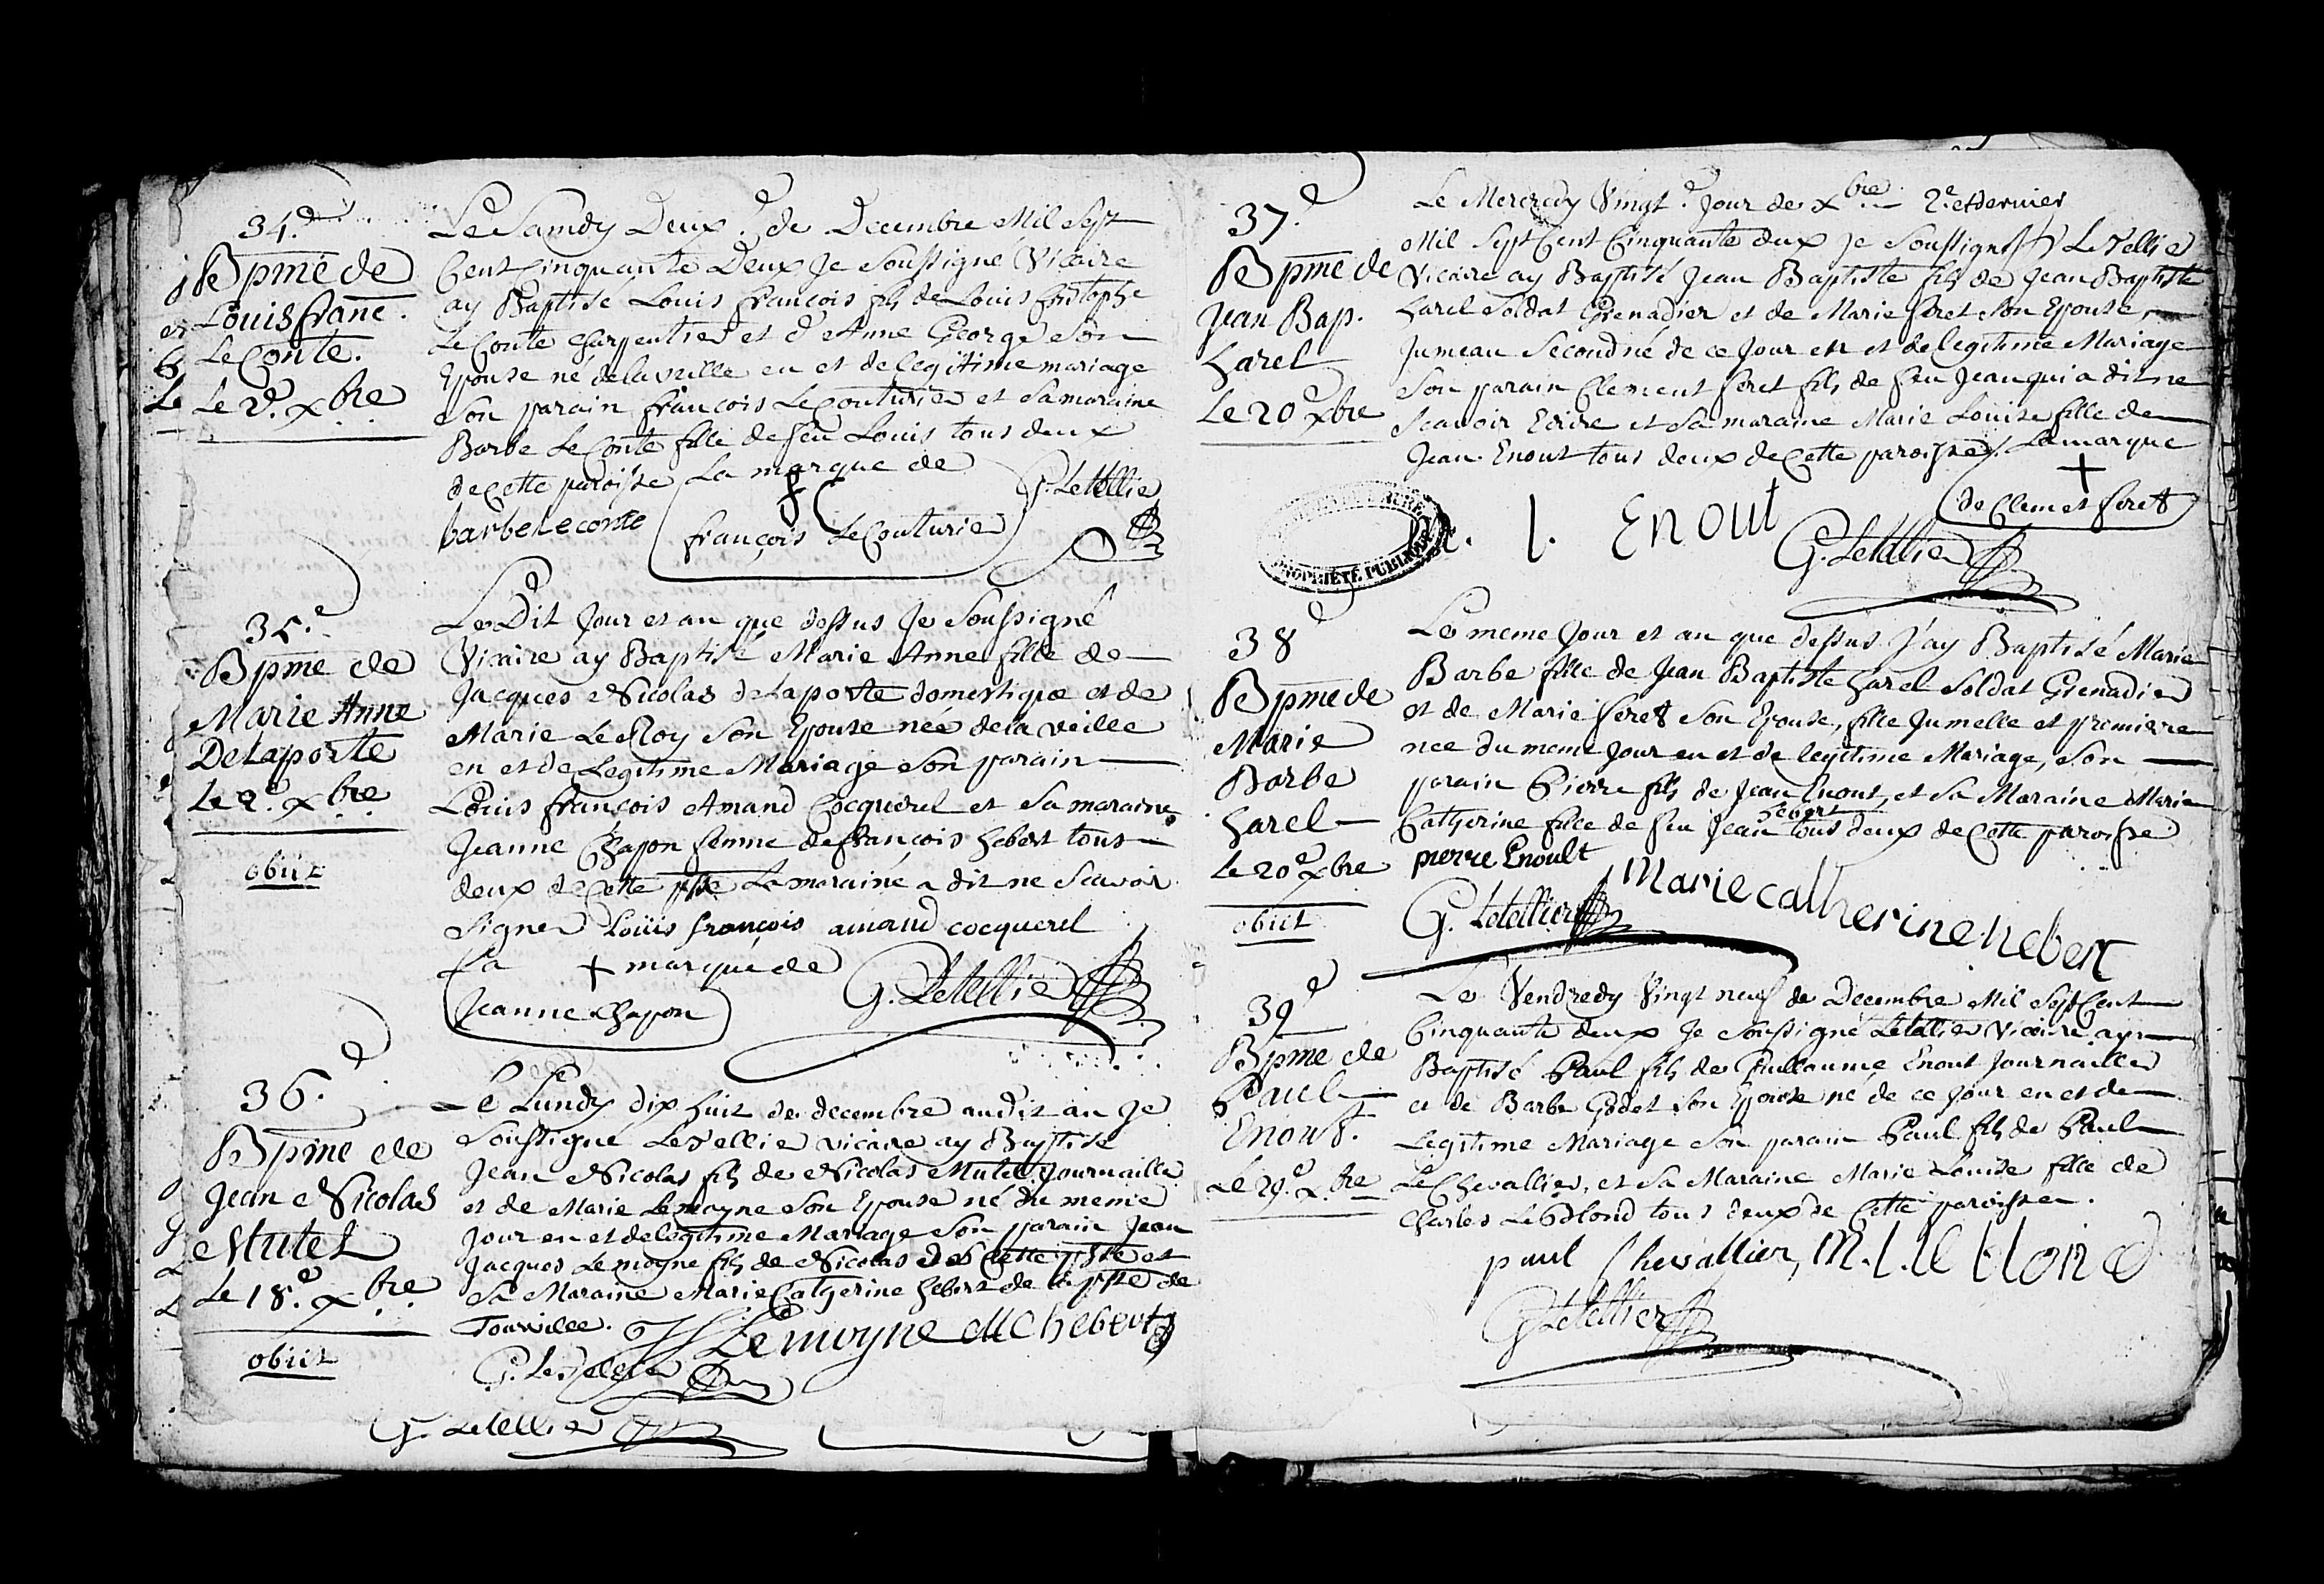 34.e
Bpme de
Louis franc.
LeConte.
Le 2e. xbre
Le Samdy Deux.e de Decembre Mil Sept
Cent Cinquante Deux Je Soussigné Vicaire
ay Baptisé Louis françois fils de Louis fristophe
LeConte Charpentier et d'Anne George Son
Epouse né de la veille en et de legitime mariage
Son parain françois LeCouturier et Samaraine
Barbe LeConte fille de feu Louis tous deux
de Cette paroisse La marque de
françois LeCouturier
barbe le conte
G. Letellier
35.e
Bpme de
Marie Anne
Delaporte
Le 2e. xbre
obiit
Le Dit Jour et an que dessus Je Soussigné
Vicaire ay Baptisé Marie Anne fille de
Jacques Nicolas delaporte domestique et de
Marie LeRoy Son Epouse née de la veille
en et de Legitime Mariage Son parain
Louis françois Amand Cocquerel et Sa maraine
Jeanne Chapon femme de françois hebert tous
deux de Cette psse La maraine a dit ne Scavoir
Signer Loüis françois amand cocquerel
La + marque de
Jeanne Chapon
G. Letellier
36.e
Bpme de
Jean Nicolas
Mutel
Le 18e. xbre
obiit
Le Lundy dix huit de decembre audit an Je
Soussigné Letellier vicaire ay Baptisé
Jean Nicolas fils de Nicolas Mutel Journaillier
et de Marie Lemoyne Son Epouse né du meme
Jour en et de legitime Mariage Son parain Jean
Jacques Lemoyne fils de Nicolas de Cette psse et
Sa Maraine Marie Catherine hebert de la psse de
Tourville.
Lemoyne MC hebert
G. Letellier
G. Letellier
37.e
Bpme de
Jean Bap.
harel
Le 20e xbre
Le Mercredy Vingt.e Jour de xbre. 2e. et dernier
Mil Sept Cent Cinquante deux Je Soussigné Letellier
Vicaire ay Baptisé Jean Baptiste fils de Jean Baptiste
harel Soldat Grenadier et de Marie feret Son Epouse,
Jumeau Second né de ce Jour en et de legitime Mariage
Son parain Clement feret fils de feu Jean qui a dit ne
Scavoir Ecrire et Sa maraine Marie Louise fille de
Jean Enout tous deux de Cette paroisse. La marque
+
de Clemet feret
m. l. Enout
G. Letellier
PROPRIÉTÉ PUBLIQUE
38e
Bpme de
Marie
Barbe
harel
Le 20e xbre
obiit
Le meme Jour et an que dessus J'ay Baptisé Marie
Barbe fille de Jean Baptiste harel Soldat Grenadier
et de Marie feret Son Epouse, fille Jumelle et premiere
nee du meme Jour en et de legitime Mariage, Son
parain Pierre fils de Jean Enout, et Sa Maraine Marie
hebert
Catherine fille de feu Jean tous deux de Cette paroisse
pierre Enoult
Marie catherine hebert
G. Letellier
39e
Bpme de
Paul
Enout.
Le 29e. xbre
Le Vendredy Vingt neuf de Decembre Mil Sept Cent
Cinquante deux Je Soussigné Letellier Vicaire ay
Baptisé Paul fils de Guillaume Enout Journaillier
et de Barbe Godet Son Epouse né de ce Jour en et de
Legitime Mariage Son parain Paul fils de Paul
LeChevallier, et Sa Maraine Marie Louise fille de
Charles LeBlond tous deux de Cette paroisse.
paul Chevallier, M. l. le blond
G Letellier